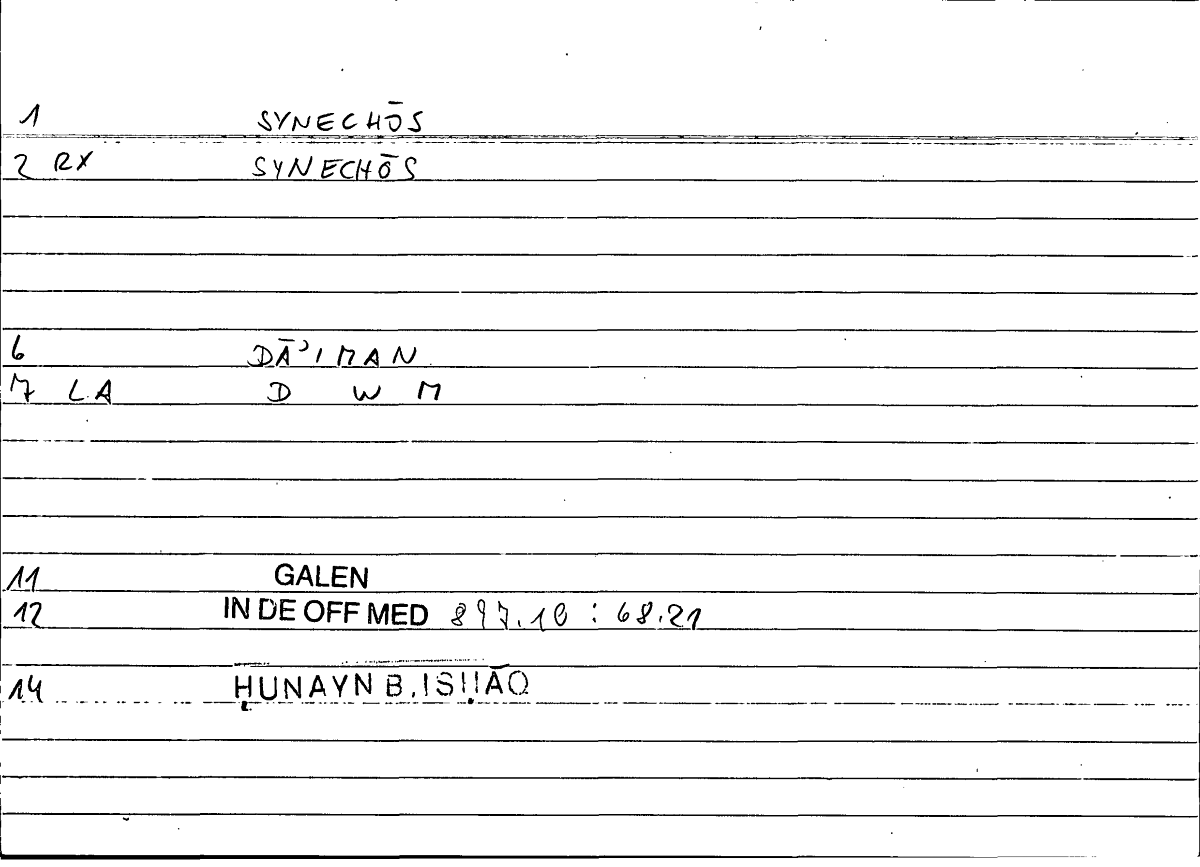 1 SYNECHŌS
2 RX SYNECHŌS
6 DĀʾIMAN
7 LA D W M
11 GALEN
12 IN DE OFF MED 897.10 : 68.21
14 ḤUNAYN B. ISḤĀQ